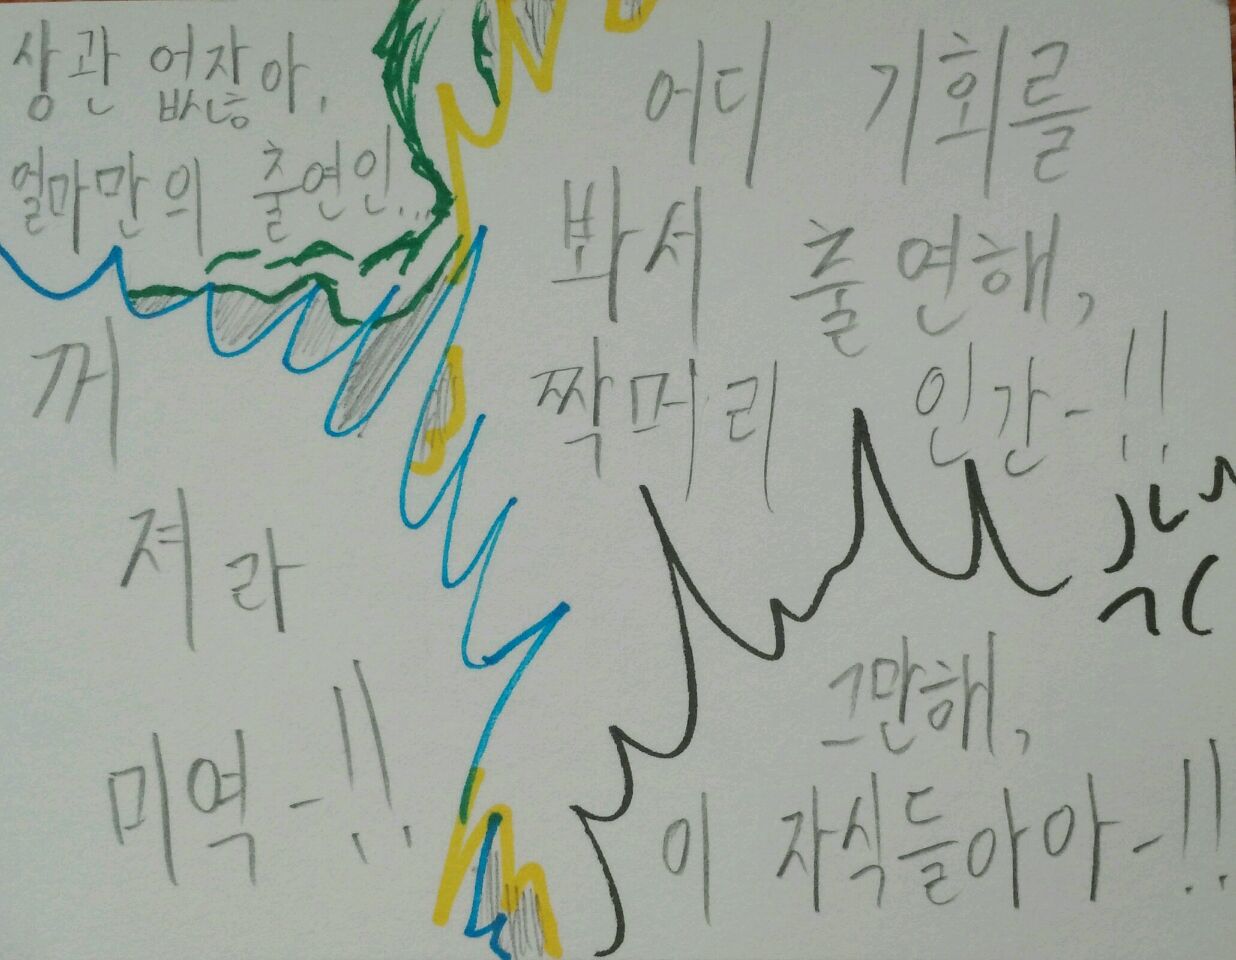 상관 없잖아,
얼마만의 출연인...
어디 기회를
봐서 출연해,
짝머리 인간-!!
꺼
져라
미역-!!
그만해,
이 자식들아아-!!